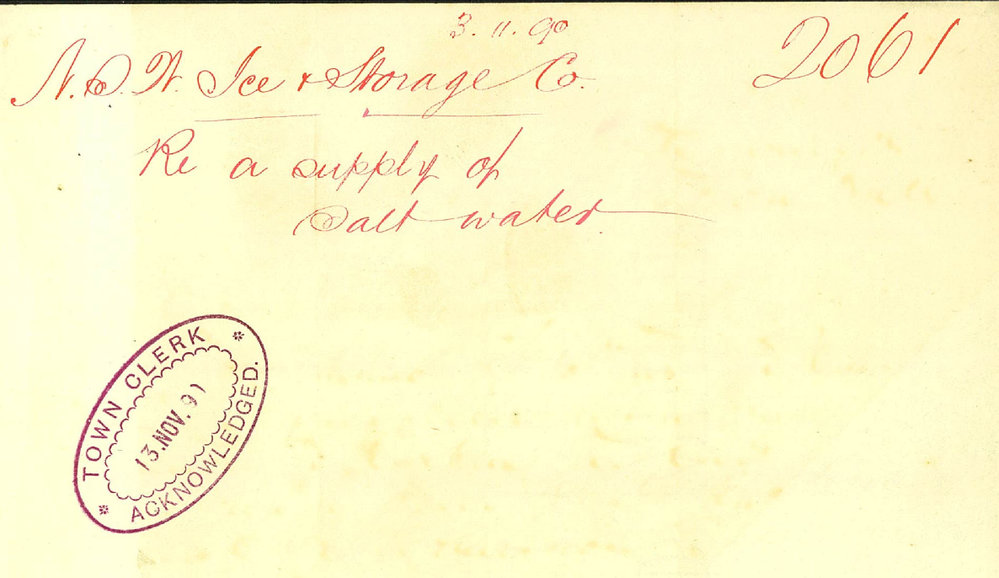 3.11.90
2061
N.S.W. Ice & Storage Co.
Re a supply of
Salt water
TOWN CLERK
13.NOV.91
ACKNOWLEDGED.